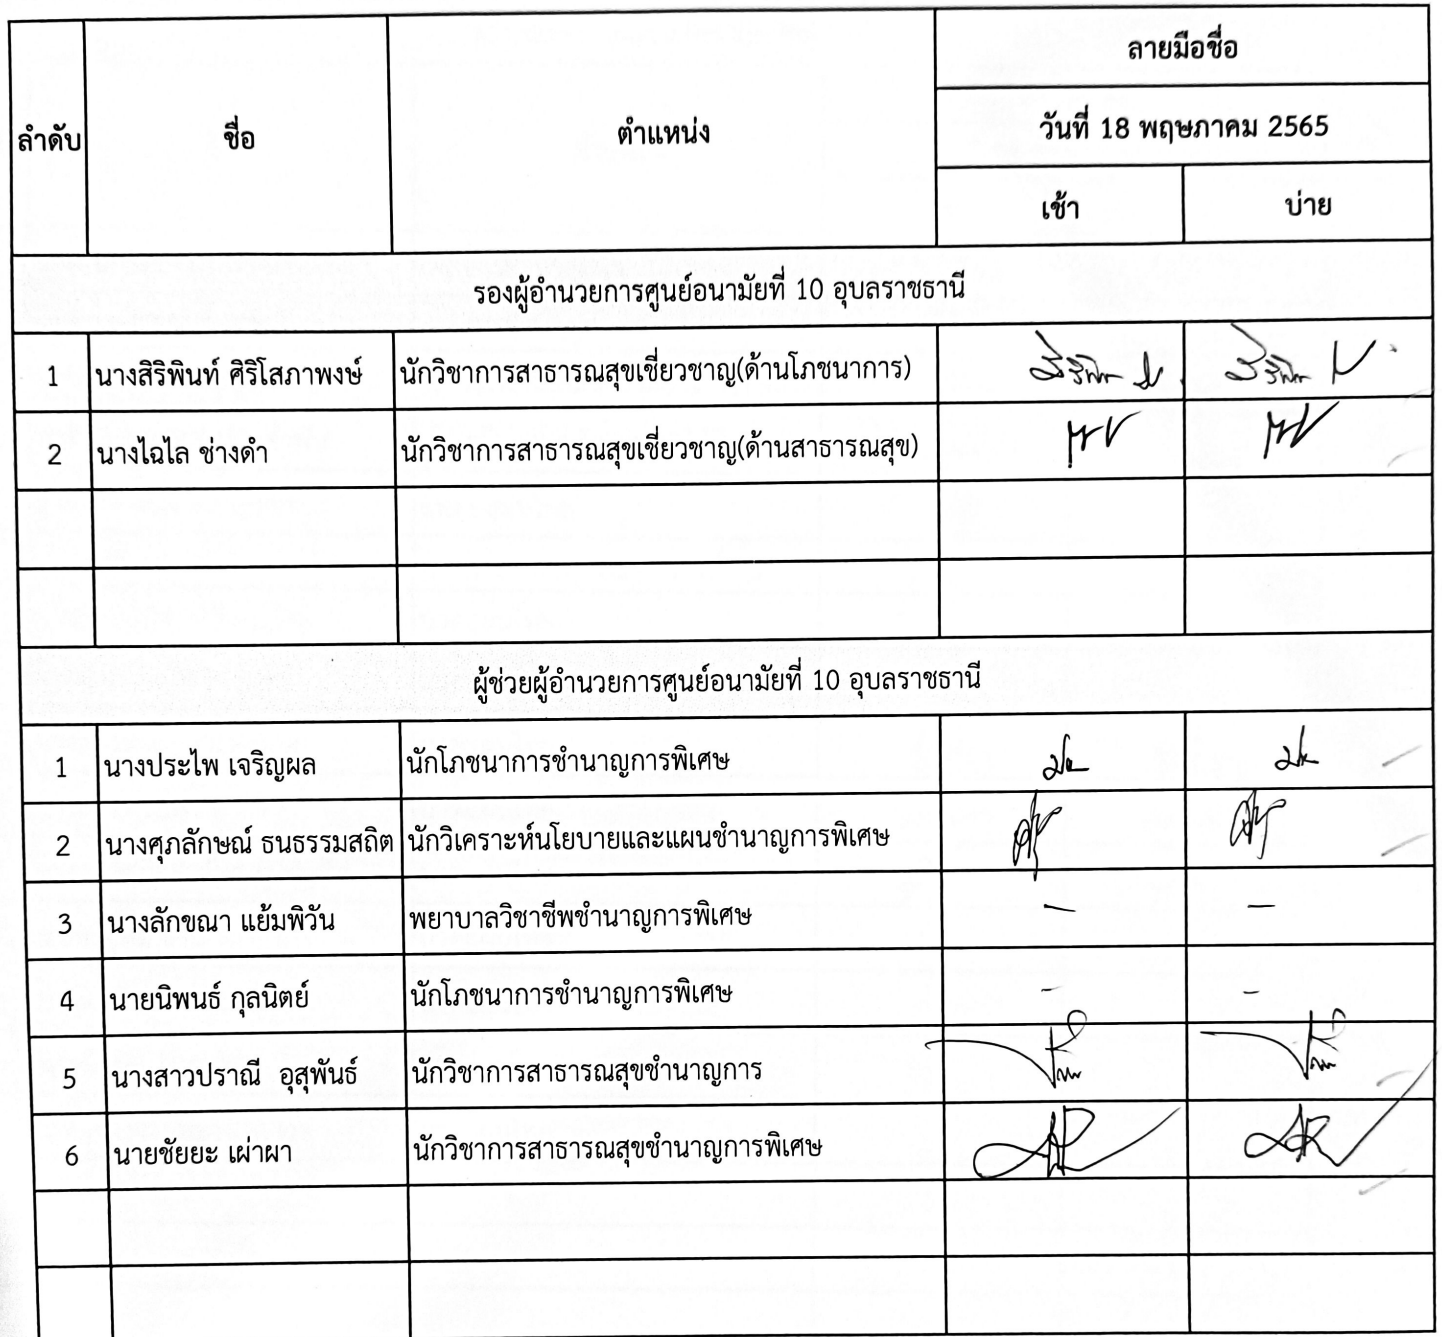 ลำดับ ชื่อ ตำแหน่ง ลายมือชื่อ
วันที่ 18 พฤษภาคม 2565
เช้า บ่าย
รองผู้อำนวยการศูนย์อนามัยที่ 10 อุบลราชธานี
1 นางสิริพินท์ ศิริโสภาพงษ์ นักวิชาการสาธารณสุขเชี่ยวชาญ(ด้านโภชนาการ)
2 นางไฉไล ช่างดำ นักวิชาการสาธารณสุขเชี่ยวชาญ(ด้านสาธารณสุข)
ผู้ช่วยผู้อำนวยการศูนย์อนามัยที่ 10 อุบลราชธานี
1 นางประไพ เจริญผล นักโภชนาการชำนาญการพิเศษ
2 นางศุภลักษณ์ ธนธรรมสถิต นักวิเคราะห์นโยบายและแผนชำนาญการพิเศษ
3 นางลักขณา แย้มพิวัน พยาบาลวิชาชีพชำนาญการพิเศษ - -
4 นายนิพนธ์ กุลนิตย์ นักโภชนาการชำนาญการพิเศษ - -
5 นางสาวปราณี อุสุพันธ์ นักวิชาการสาธารณสุขชำนาญการ
6 นายชัยยะ เผ่าผา นักวิชาการสาธารณสุขชำนาญการพิเศษ